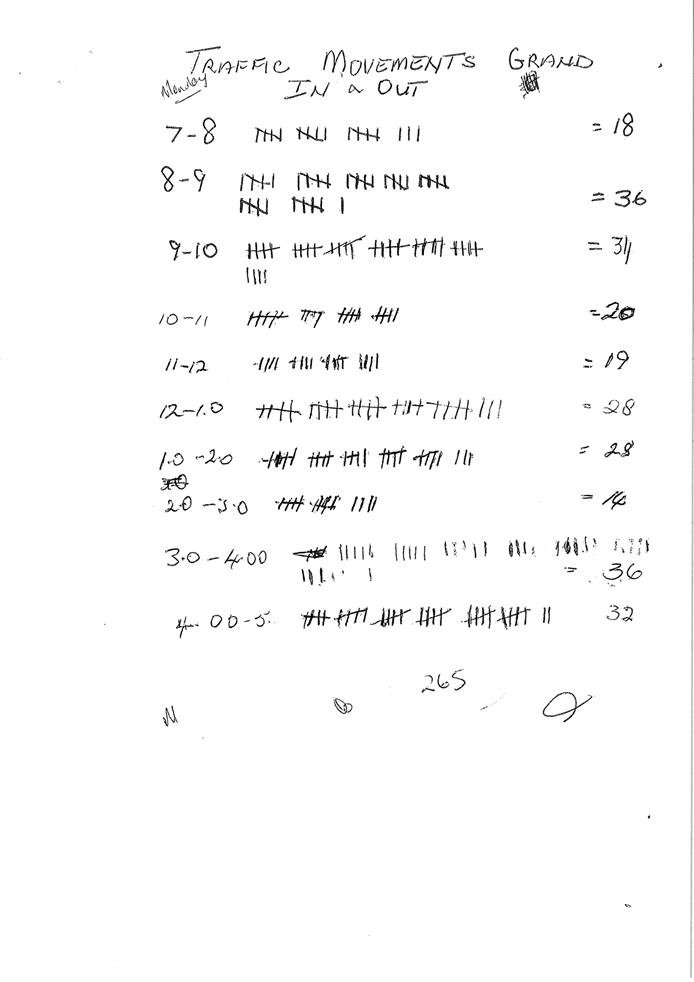 TRAFFIC MOVEMENTS GRAND
Monday
IN & OUT
7-8 = 18
8-9
= 36
9-10 = 34
10-11 = 20
11-12 = 19
12-1.0 = 28
1.0-2.0 = 28
2.0-3.0 = 14
3.0-4.00
= 36
4.00-5. 32
265